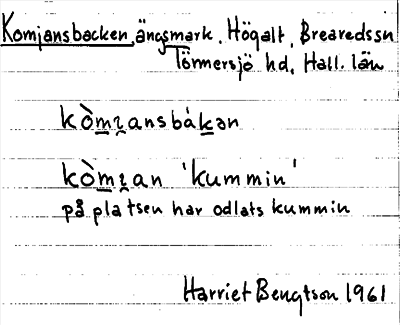 Komjansbacken, ängsmark, Högalt, Brearedssn
Tönnersjö hd, Hall. län
kòmɪansbàkən
kòmɪan 'kummin'
på platsen har odlats kummin
Harriet Bengtson 1961